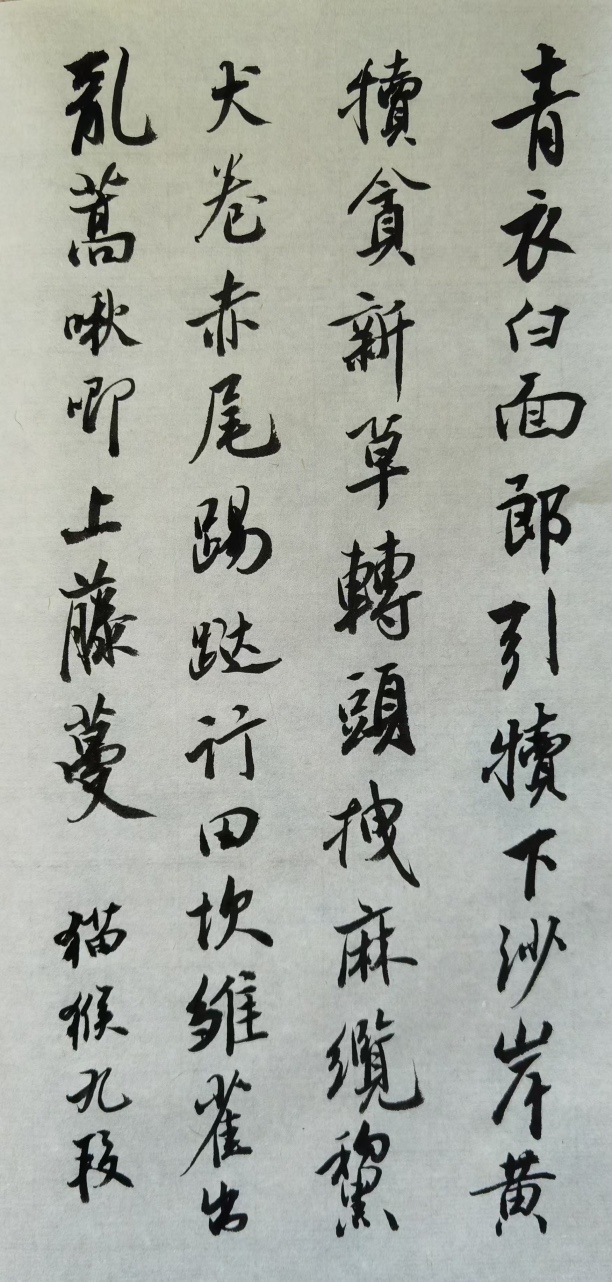 青衣白面郎引犢下沙岸黄
犢貪新草轉頭拽麻纜黧
犬卷赤尾踢躂行田坎雏雀出
乱蒿啾唧上藤蔓 猫猴九段